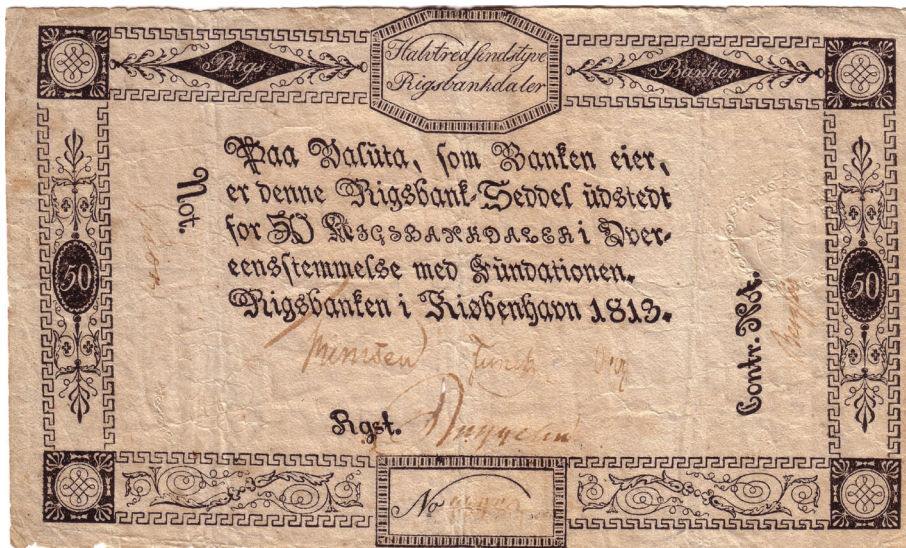 Rigs
Halvtredsindstyve
Rigsbankdaler
Banken
Paa Valuta, som Banken eier,
er denne Rigsbank-Seddel udstedt
for 50 RIGSBANKDALER i Over-
eensstemmelse med Fundationen.
Rigsbanken i Kiøbenhavn 1813.
Not.
Contr. Not.
50
50
Rgst.
No